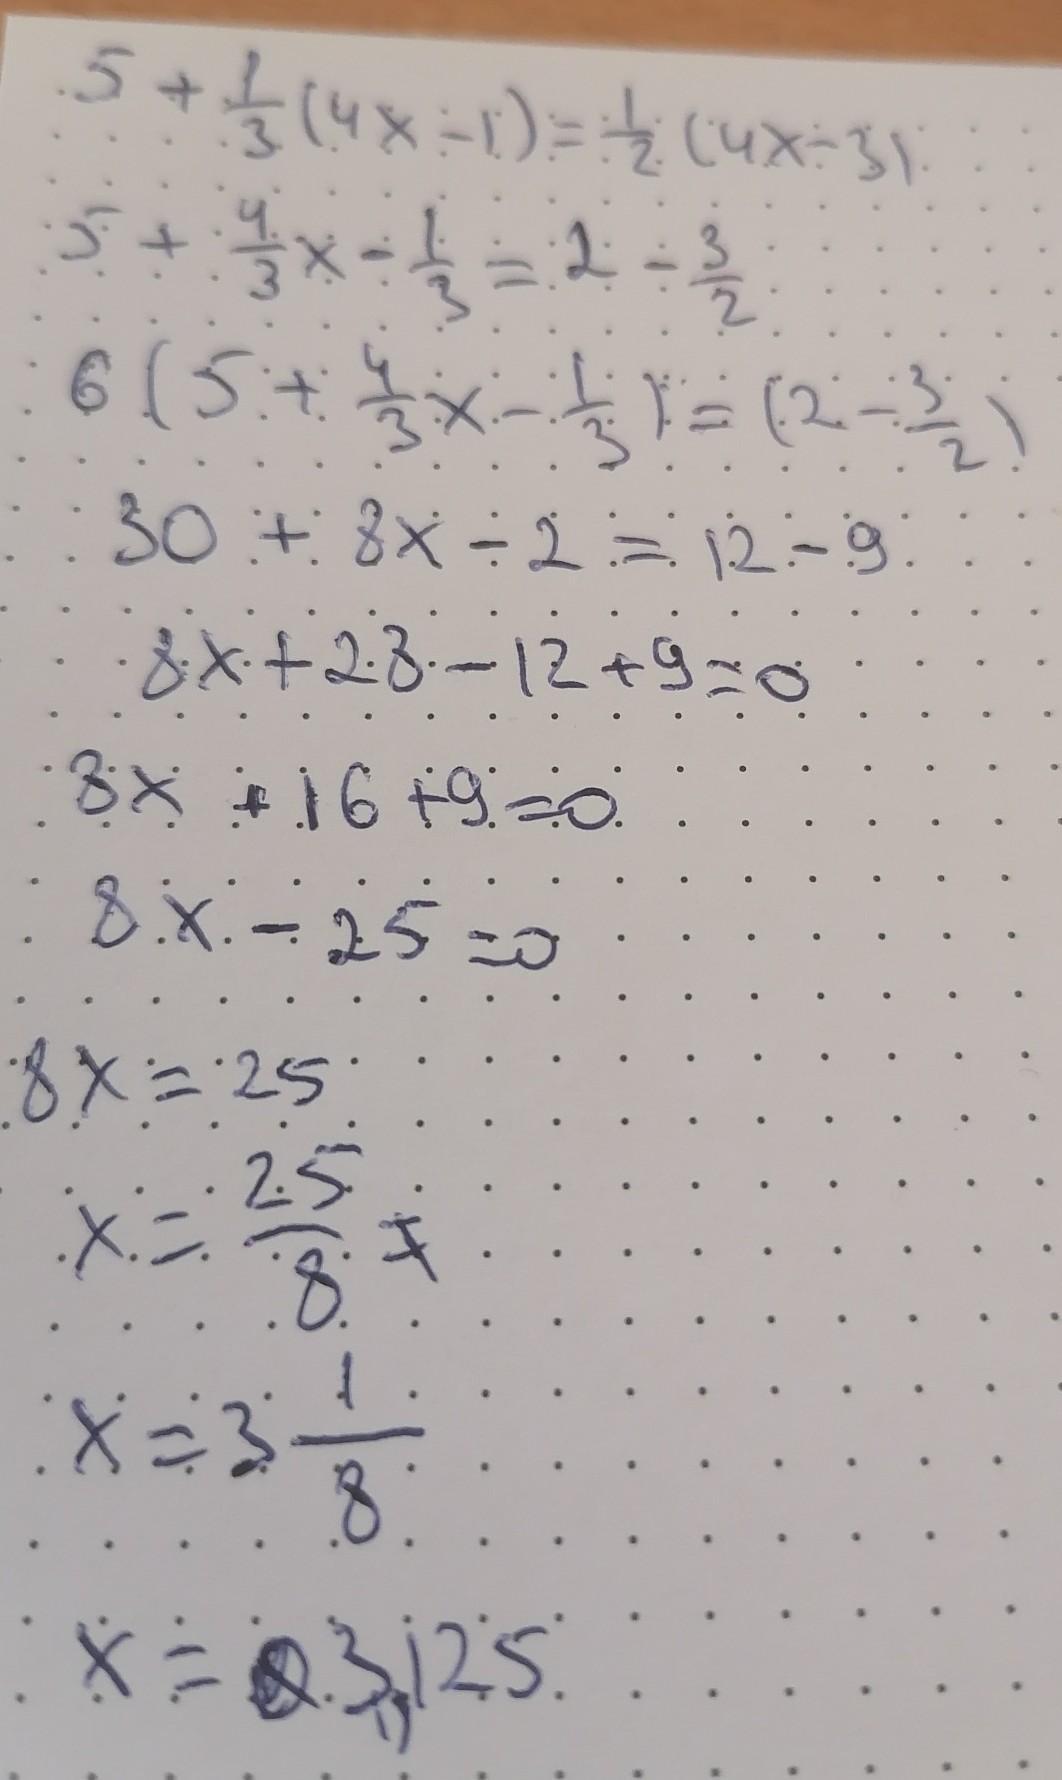 5 + 1/3 (4x - 1) = 1/2 (4x - 3)
5 + 4/3 x - 1/3 = 2 - 3/2
6 (5 + 4/3 x - 1/3) = (2 - 3/2)
30 + 8x - 2 = 12 - 9
8x + 28 - 12 + 9 = 0
8x + 16 + 9 = 0
8x - 25 = 0
8x = 25
x = 25/8
x = 3 1/8
x = 3,125